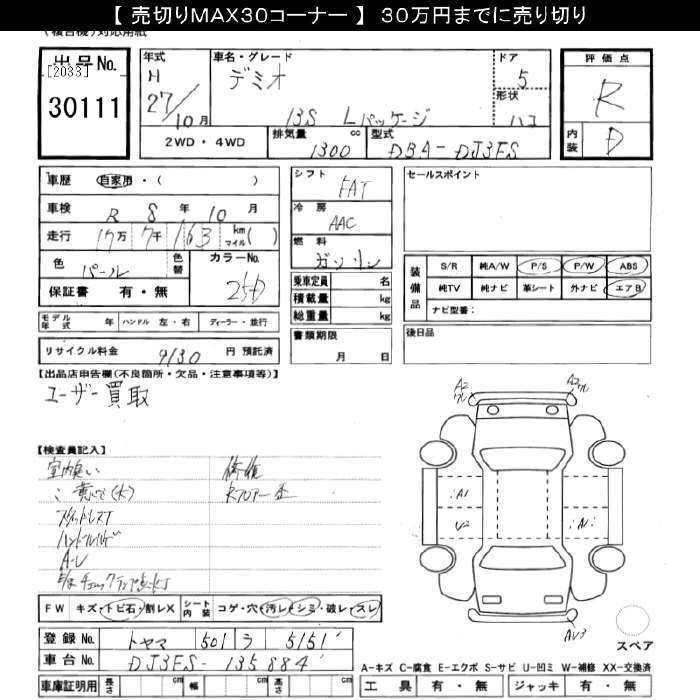 【 売切りMAX30コーナー 】 30万円までに売り切り
(複合機)対応用紙
出品No.
[2033]
30111
年式
H
27/10月
車名・グレード
デミオ
13S Lパッケージ
ドア
5
形状
ハコ
評価点
R
内装
D
2WD・4WD
排気量
1300 cc
型式
DBA-DJ3FS
車歴 自家用・( )
車検 R 8 年 10 月
走行 17万 7千 163 km マイル( )
色 パール 色替
カラーNo.
25D
保証書 有・無
モデル年式 年 ハンドル 左・右 ディーラー・並行
リサイクル料金 9130 円 預託済
シフト
FAT
冷房
AAC
燃料
ガソリン
乗車定員 名
積載量 kg
総重量 kg
書類期限
月 日
セールスポイント
装備品
S/R 純A/W P/S P/W ABS
純TV 純ナビ 革シート 外ナビ エアB
ナビ型番:
後日品
【出品店申告欄(不良箇所・欠品・注意事項等)】
ユーザー買取
【検査員記入】
修復
A2
A2
A1
U2
FW キズ・トビ石・割レX
シート内装 コゲ・穴・汚レ・シミ・破レ・スレ
登録No. トヤマ 501 ラ 5151
車台No. DJ3FS-135884
車庫証明用 長さ cm 幅 cm 高さ cm
スペア
A-キズ C-腐食 E-エクボ S-サビ U-凹ミ W-補修 XX-交換済
工具 有・無 ジャッキ 有・無